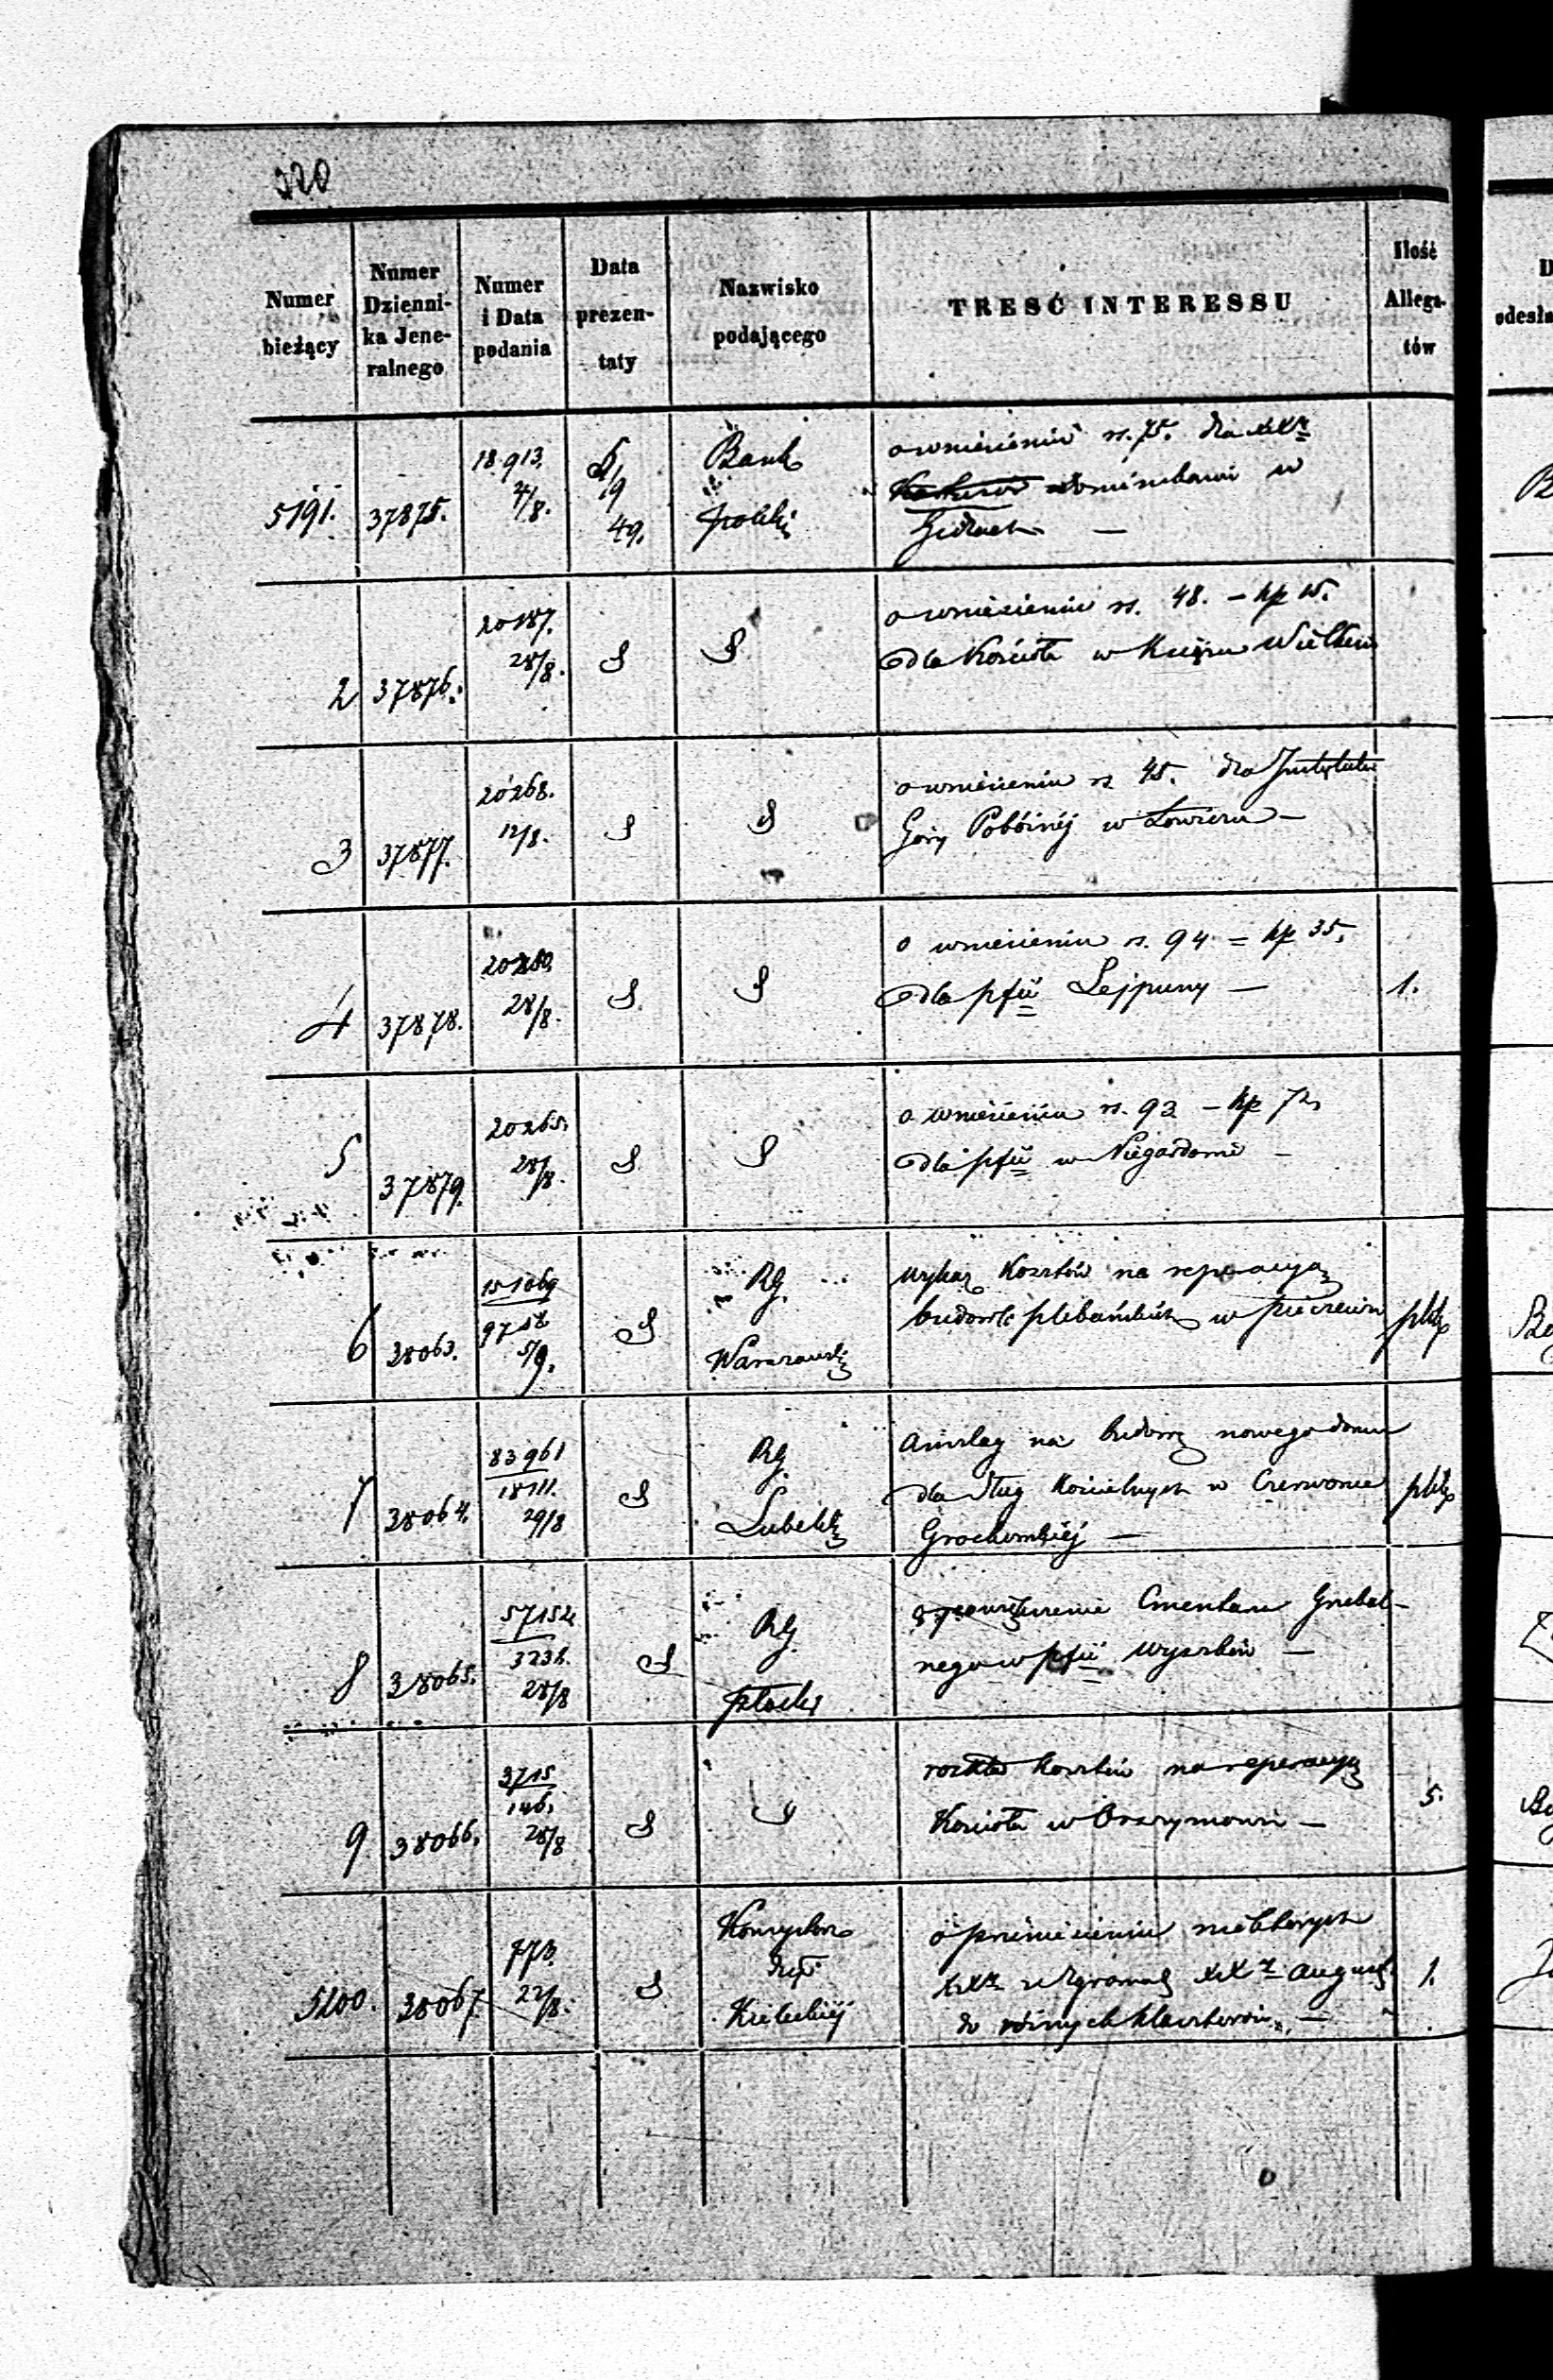 320
Numer bieżący
Numer Dzienni- ka Jene- ralnego
Numer i Data podania
Data prezen- taty
Nazwisko podającego
TREŚĆ INTERESSU
Ilość Allega- tów
5191. 37875. 18.913. 4/8. 5/9 49. Bank Polski
o wniesieniu rs. 75. dla XX
w Gidlach —
2 37876. 20187. 28/8. S S
o wniesieniu rs. 48. – kp 15.
dla Kościoła w Książu Wielkim
3 37877. 20268. 12/8. S S
o wniesieniu rs 45. dla Instytutu
Góry Pobóżnéj w Łowiczu —
4 37878. 28/8. S. S
o wniesieniu rs. 94 = kp 35.
dla pfii Lejpuny — 1.
5 37879. 20265. 28/8. S S
o wniesieniu rs. 93 – kp 72
dla pfii w Niegardowie –
6 38063. 151069 9758 5/9. S RG. Warszawski
wykaz kosztów na reperacyą
budowli plebańskich w
7 38064. 83961 18111. 29/8 S RG. Lubelski
Anszlag na budowę nowego domu
dla sług kościelnych w Czerwonce
Grochowskiéj —
8 38065. 57152 28/8 S RG. Płocki
Cmentarza Grzebal-
nego w pfii Wyszków —
9 38066. 3715 146. 28/8 S S
rozkład kosztów na reperacyą
Kościoła w — 5.
5200. 38067 773. 22/8. S Konsystorz Kieleckiéj
o przeniesieniu niektórych
XX z Zgromad. XX August.
do różnych klasztorów. — 1.